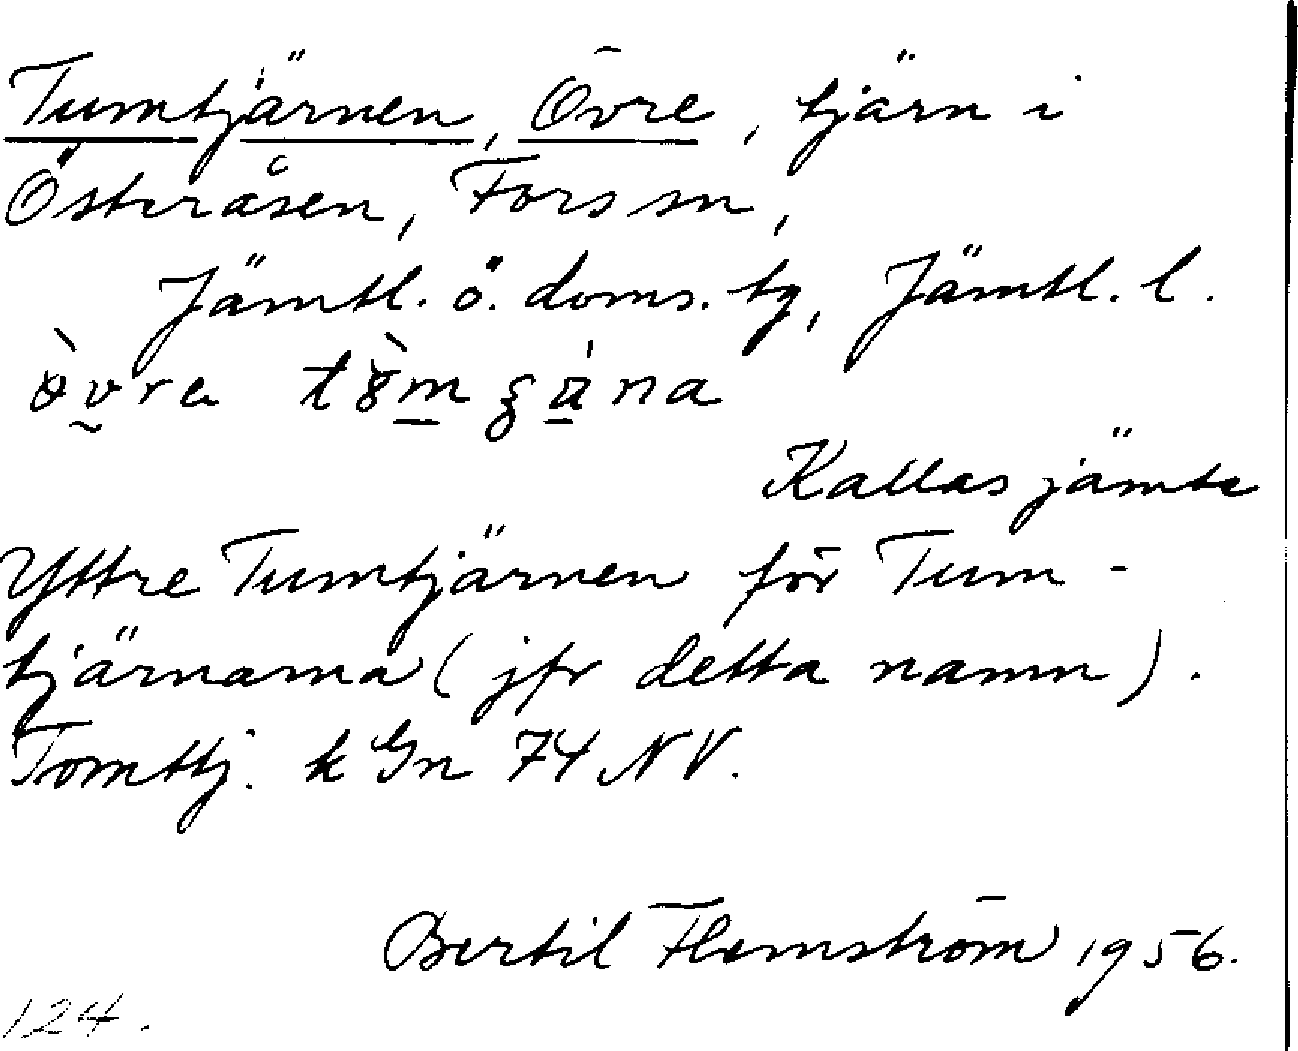 Tumtjärnen, Övre, tjärn i
Österåsen, Fors sn,
Jämtl. ö. doms. tg, Jämtl. l.
Kallas jämte
Yttre Tumtjärnen för Tum-
tjärnarna (jfr detta namn).
Tomttj. k Gn 74 NV.
Bertil Flemström 1956.
124.